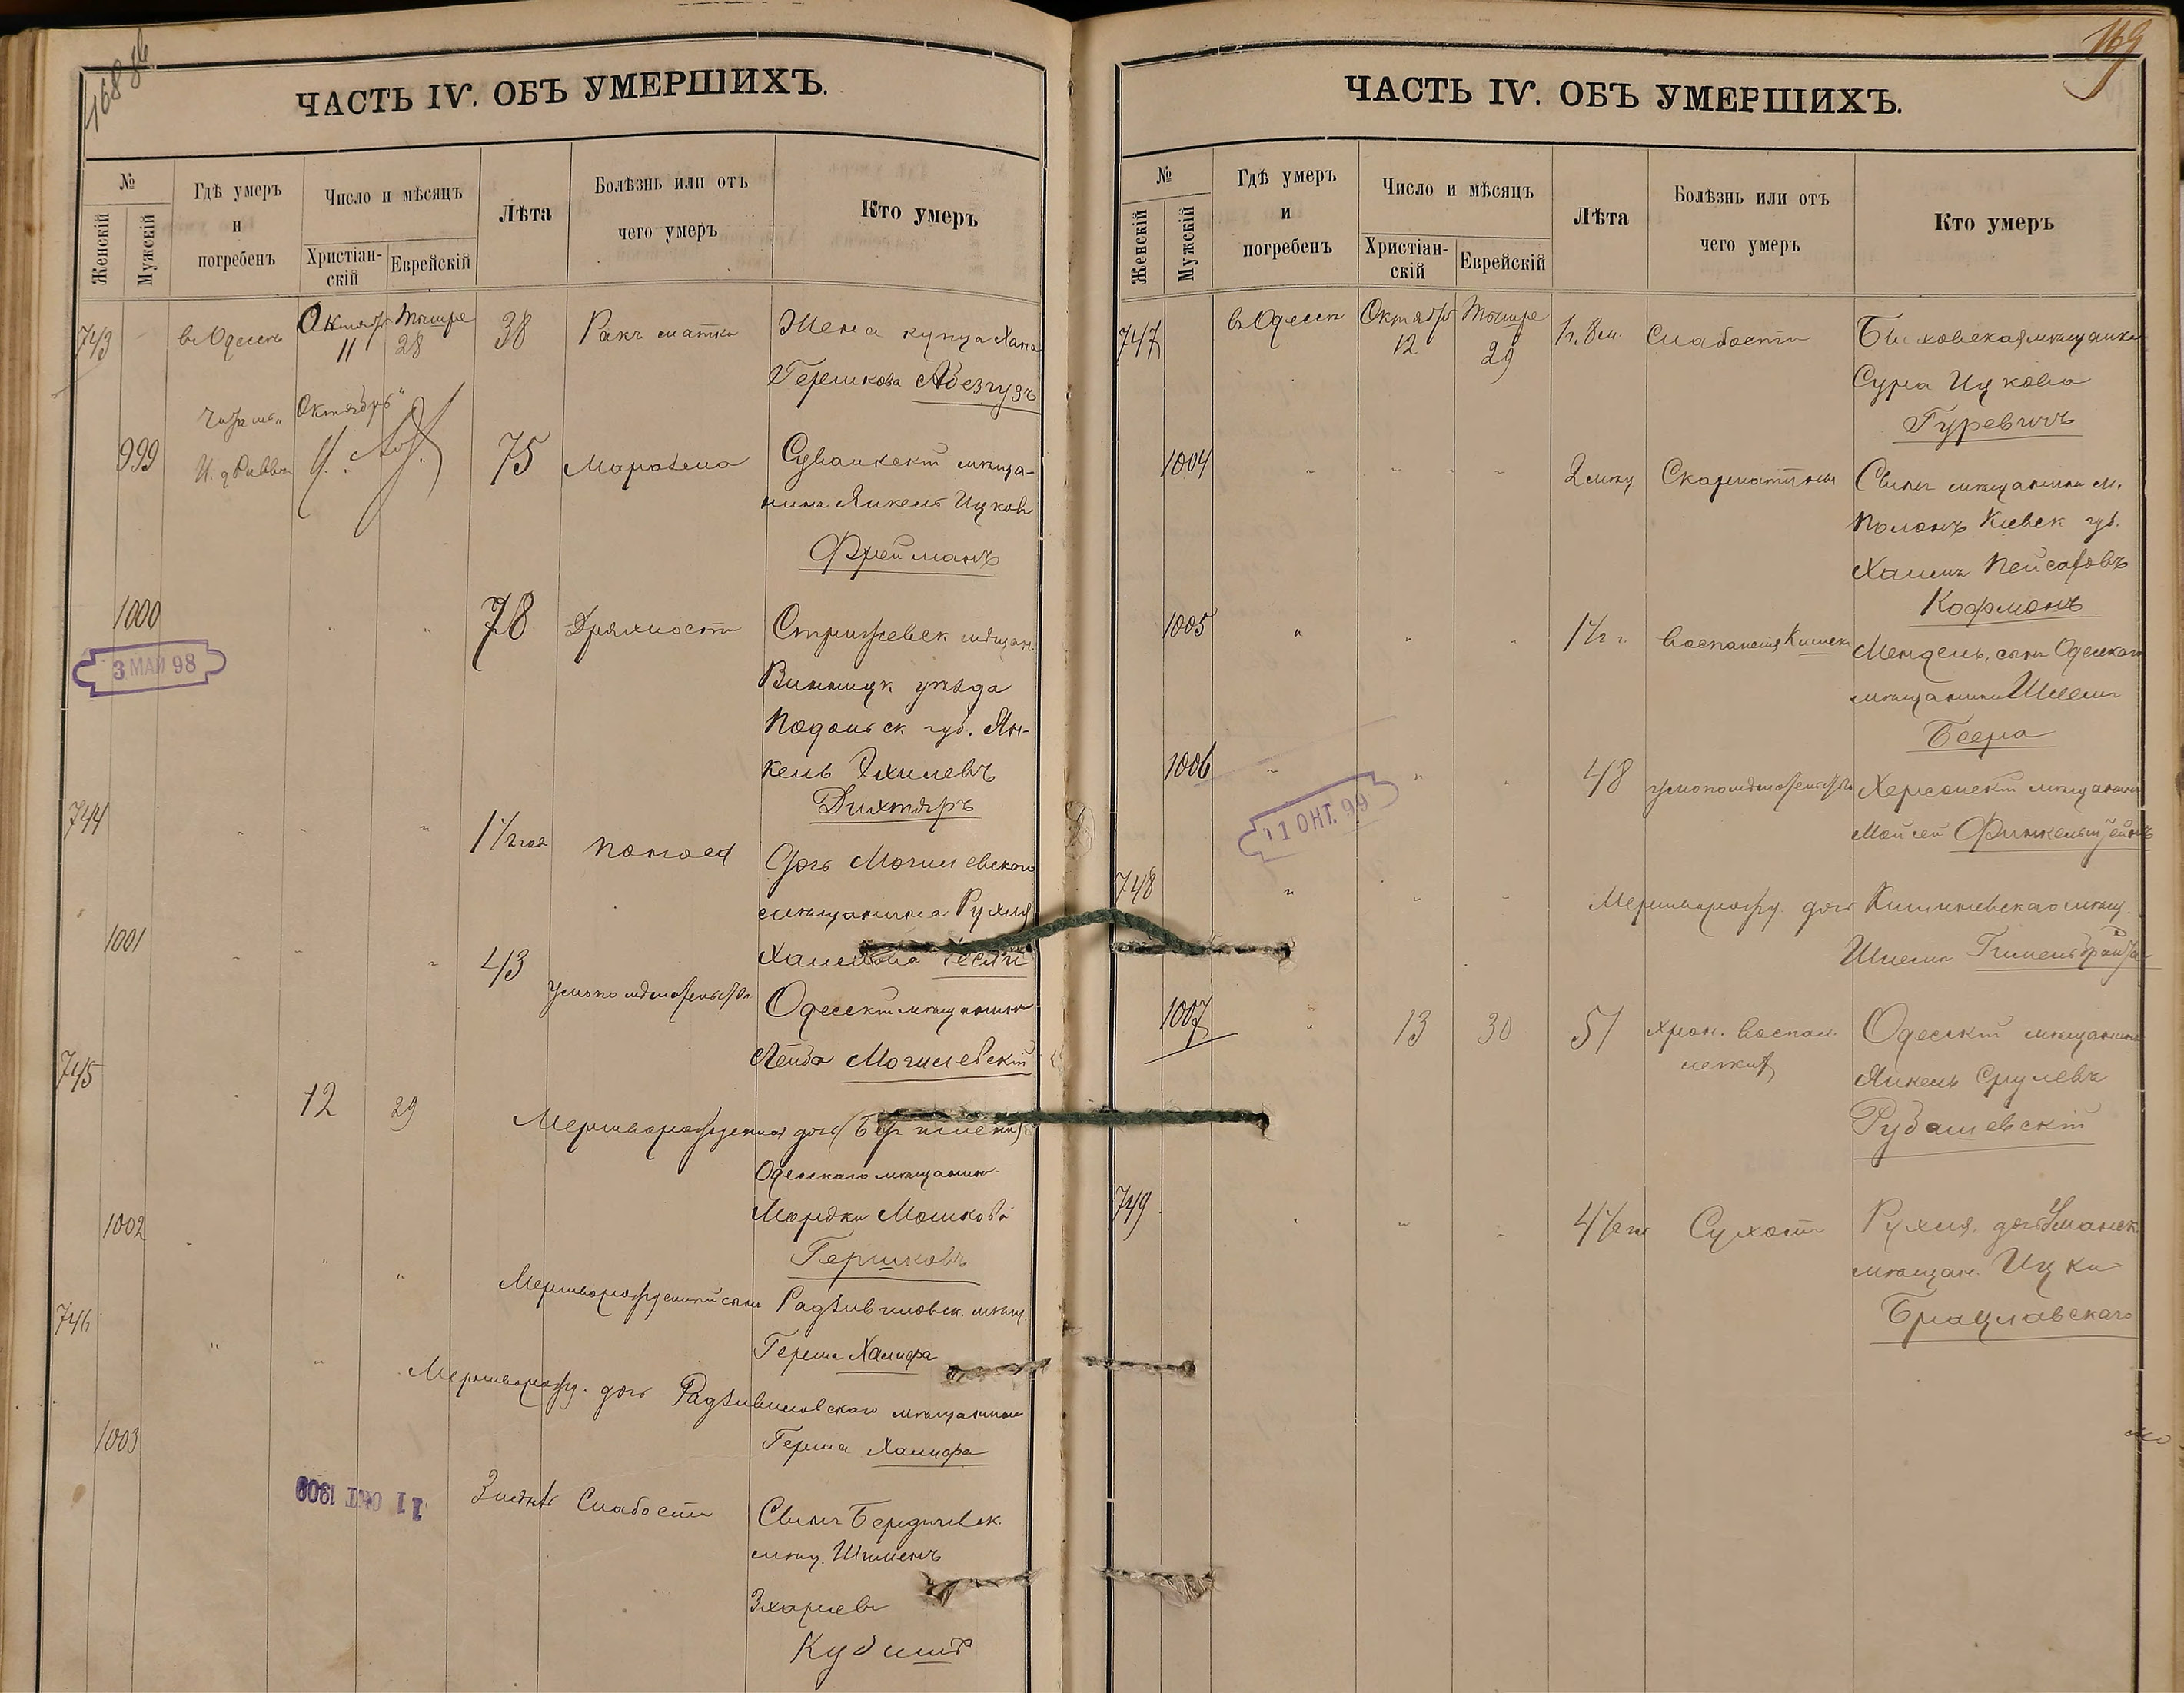 168 об
ЧАСТЬ IV. ОБЪ УМЕРШИХЪ.
№
Женскій
Мужскій
Гдѣ умеръ
и
погребенъ
Число и мѣсяцъ
Христіан-
скій
Еврейскій
Лѣта
Болѣзнь или отъ
чего умеръ
Кто умеръ
743 въ Одессѣ Октября 11 Тишре 28 38 Ракъ матки Жена купца Хана
Гершкова Абезгузъ
Октябрь
999 75 Маразма Сувалкскій мѣща-
нинъ Янкель Ицков
Фрейманъ
1000 " " 78 Дряхлости Стрижевск мѣщан.
3 МАЙ 98
Винницк уѣзда
Подольск. губ. Ян-
кель Эхилевъ
Дихтяръ
744 " " " 1 1/2 год Поноса Дочь Могилевскаго
мѣщанина Рухля
Хаимова
1001 " " " 43 умопомѣшательства
Одесскій мѣщанинъ
Лейба Могилевскій
745 " 12 29 Мертворожденная дочь (безъ имени)
Одесскаго мѣщанин.
Мордки Мошкова
Гершковъ
1002 " " " Мертворожденный сынъ Радзивиловск. мѣщ.
Герша Халифа
746 " " Мертворожд. дочь Радзивиловскаго мѣщанина
Герша Халифа
1003 3 мѣся Слабости Сынъ Бердичевск.
11 ОКТ 1909
мѣщ. Шлиомъ
Кубитъ
169
ЧАСТЬ IV. ОБЪ УМЕРШИХЪ.
№
Женскій
Мужскій
Гдѣ умеръ
и
погребенъ
Число и мѣсяцъ
Христіан-
скій
Еврейскій
Лѣта
Болѣзнь или отъ
чего умеръ
Кто умеръ
747 въ Одессѣ Октября 12 Тишре 29 1 г. 8 м. Слабости Быховская мѣщанка
Сура Ицкова
Гуревичъ
1004 " " " " Скарлатины Сынъ мѣщанина м.
Полонъ Кіевск губ.
Хаимъ Пейсаховъ
Кофманъ
1005 " " " 1 1/2 г. Воспаленія Кишек Мендель, сынъ Одесскаго
мѣщанина Шлемы
Беера
1006 " " " 48 умопомѣшательства Херсонскій мѣщанинъ
11 ОКТ. 99
Мойсей Финкельштейнъ
748 " " " Мертворожд. дочь Кишиневскаго мѣщ.
Шлема
1007 " 13 30 51 хрон. воспал. Одесскій мѣщанинъ
легких Янкель Срулевъ
Рубашевскій
749 " " " 4 1/2 г Сухоти Рухля, дочь Уманск
мѣщан. Ицка
Брацлавскаго